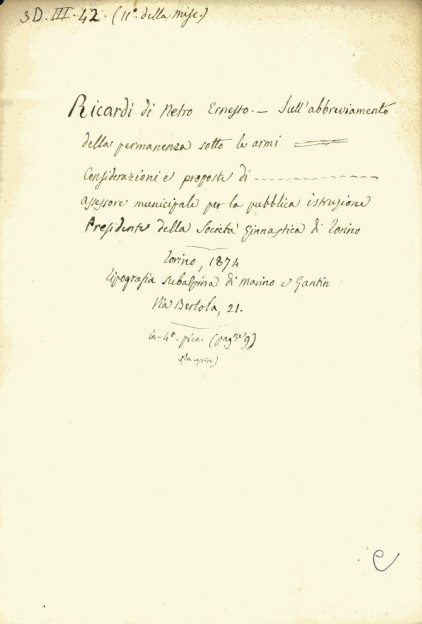 3D.III.42. (11º della misc.)
Ricardi di Netro Ernesto. — Sull'abbreviamento
della permanenza sotto le armi
Considerazioni e proposte di - - - - - - - - - - - - - -
assessore municipale per la pubblica istruzione
Presidente della Società Ginnastica di Torino
Torino, 1874
Tipografia subalpina di Marino e Gantin
Via Bertola, 21.
in-4º. picc. (pag.ne 9)
e